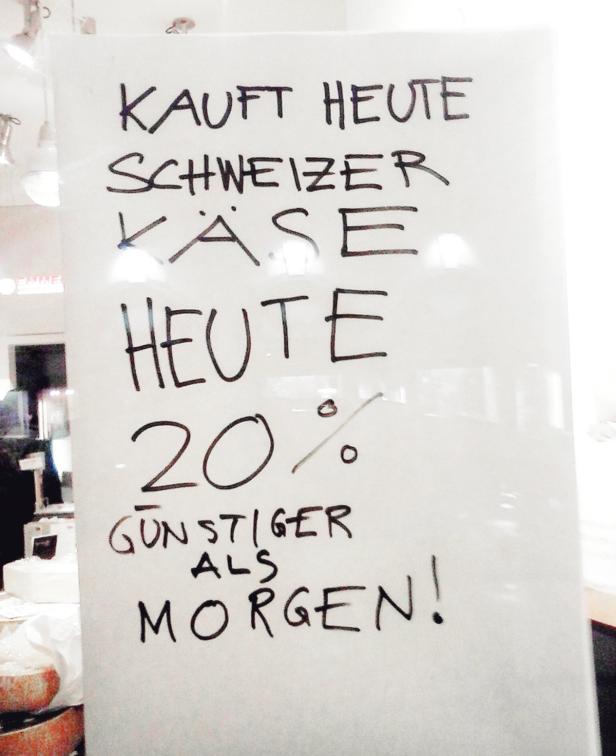 KAUFT HEUTE
SCHWEIZER
KÄSE
HEUTE
20%
GÜNSTIGER
ALS
MORGEN!